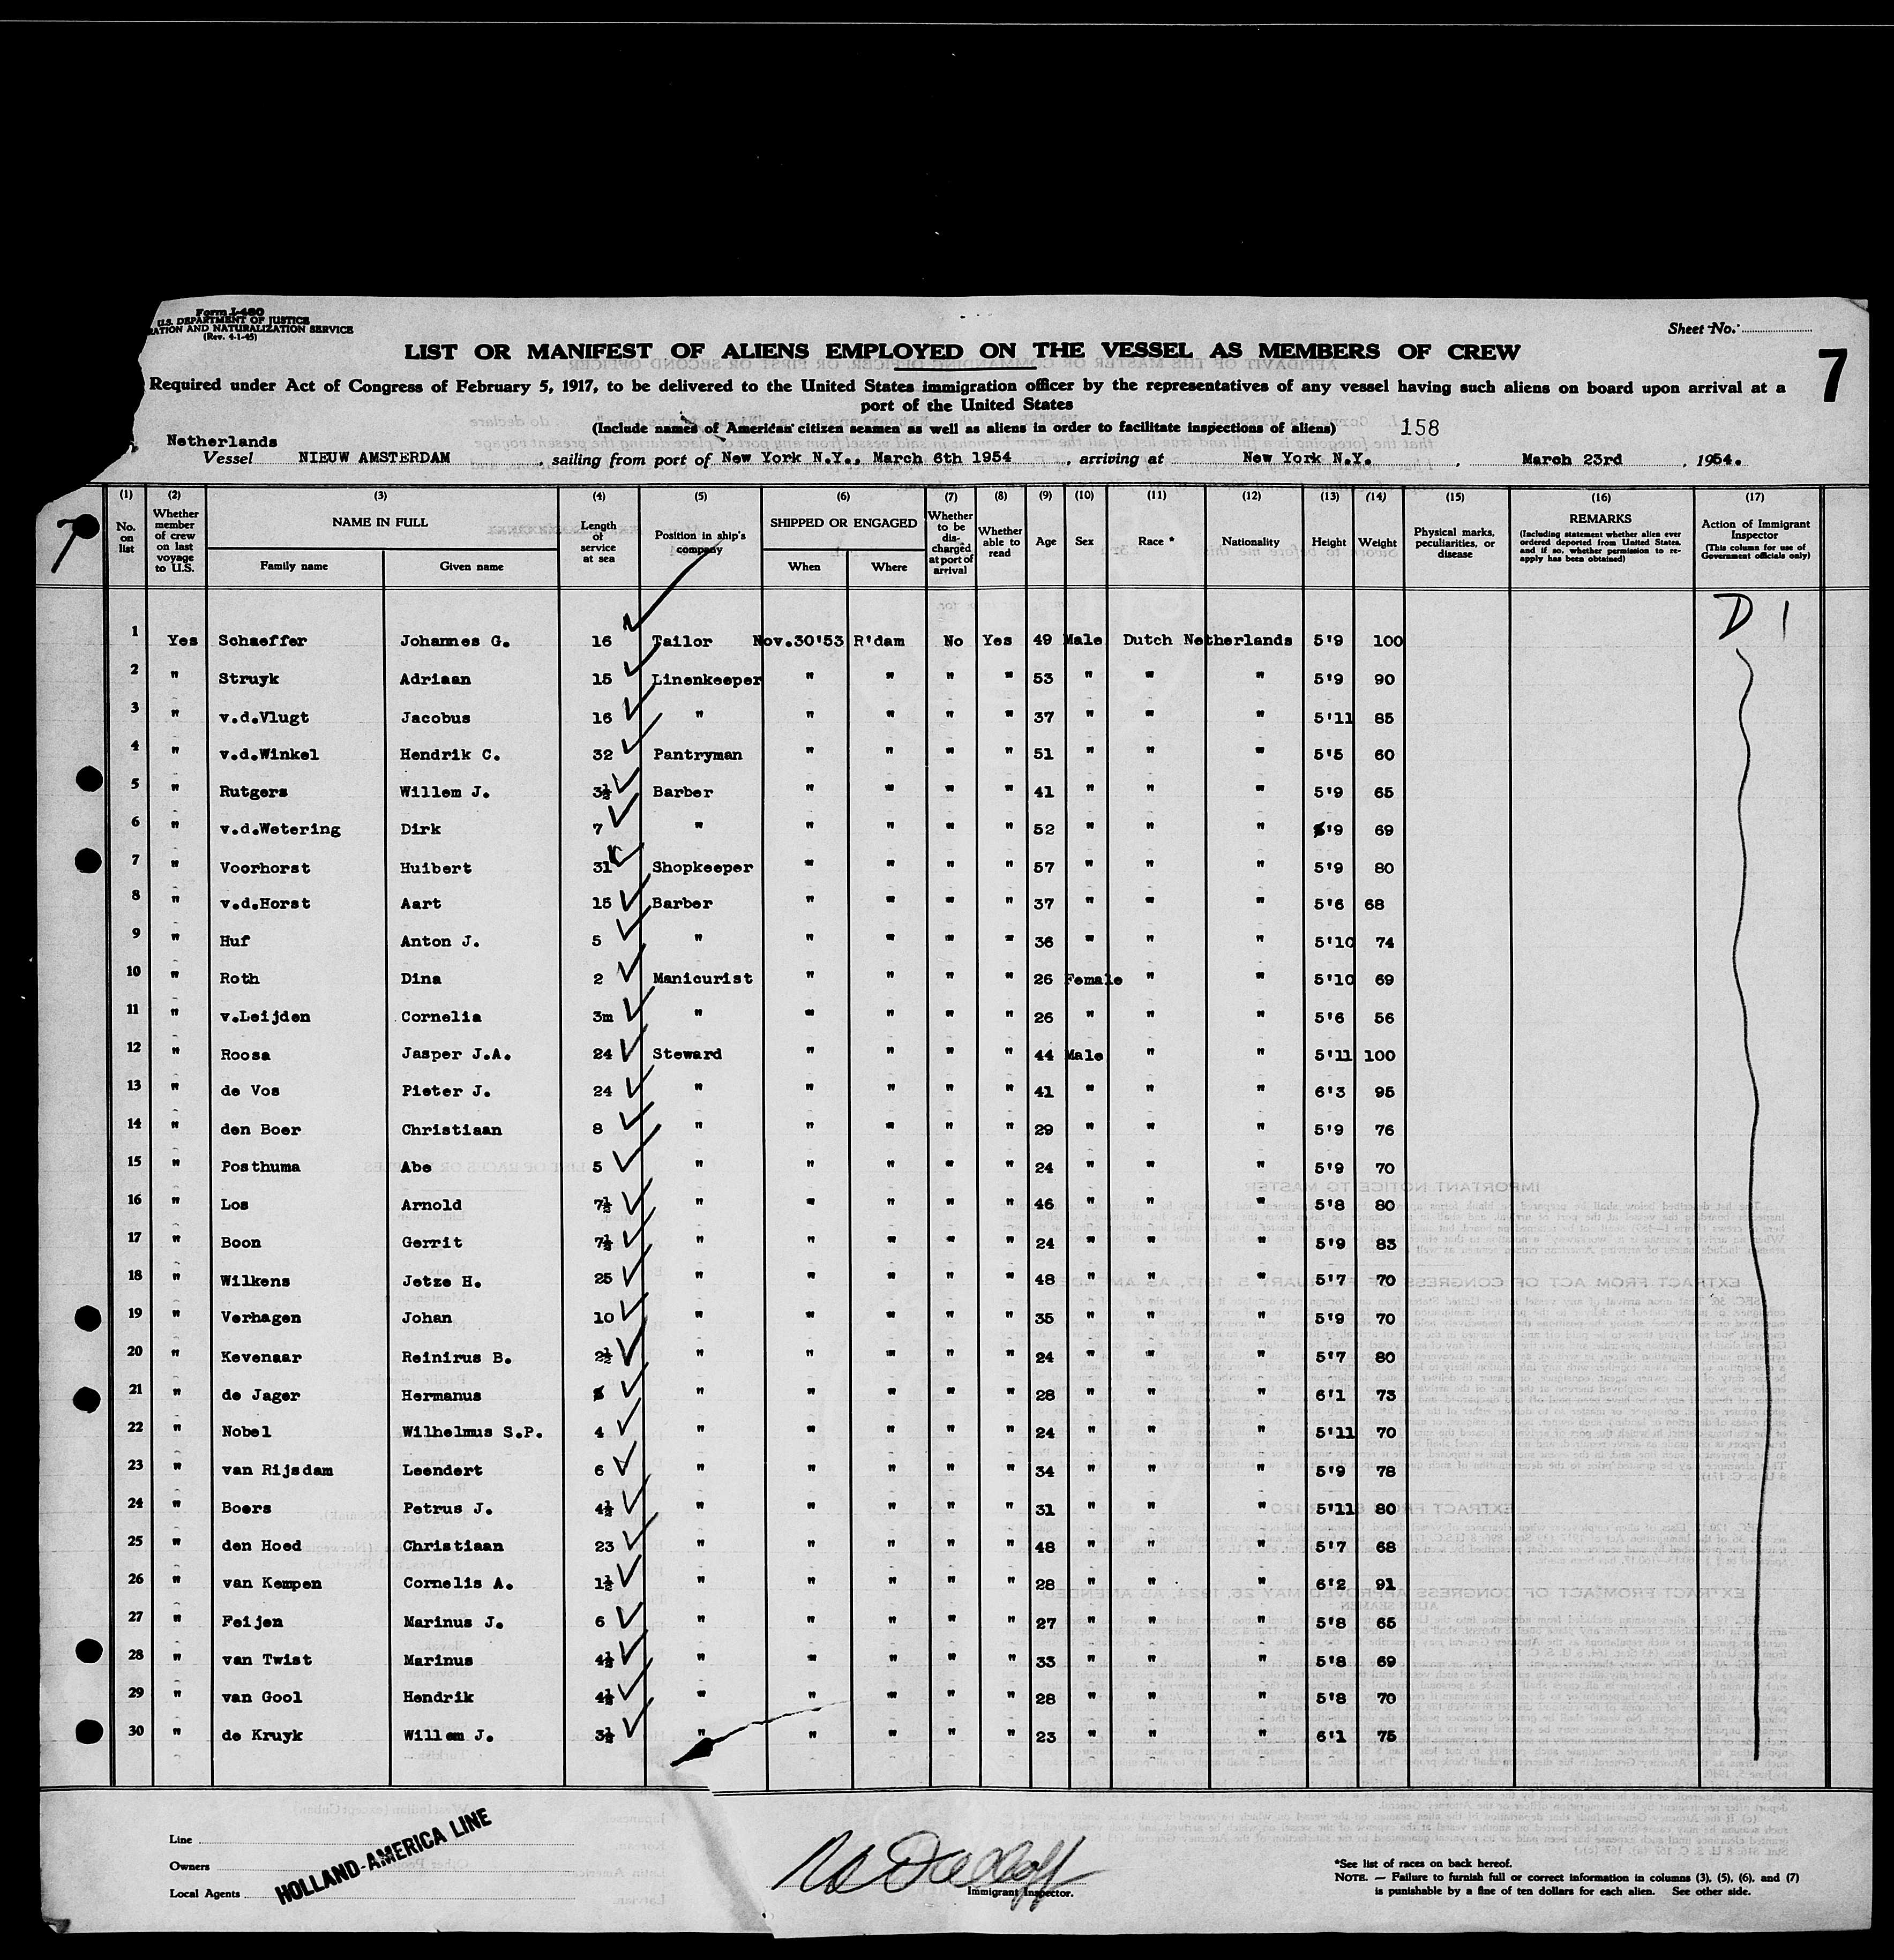 Form I-480
U.S. DEPARTMENT OF JUSTICE
RATION AND NATURALIZATION SERVICE
(Rev. 4-1-45)
Sheet No.
LIST OR MANIFEST OF ALIENS EMPLOYED ON THE VESSEL AS MEMBERS OF CREW
7
Required under Act of Congress of February 5, 1917, to be delivered to the United States immigration officer by the representatives of any vessel having such aliens on board upon arrival at a
port of the United States
(Include names of American citizen seamen as well as aliens in order to facilitate inspections of aliens) 158
Netherlands
Vessel NIEUW AMSTERDAM , sailing from port of New York N.Y., March 6th 1954 , arriving at New York N.Y. , March 23rd , 1954.
(1) (2) (3) (4) (5) (6) (7) (8) (9) (10) (11) (12) (13) (14) (15) (16) (17)
No. on list Whether member of crew on last voyage to U.S. NAME IN FULL Family name Given name Length of service at sea Position in ship's company SHIPPED OR ENGAGED When Where Whether to be discharged at port of arrival Whether able to read Age Sex Race * Nationality Height Weight Physical marks, peculiarities, or disease REMARKS (Including statement whether alien ever ordered deported from United States, and if so, whether permission to reapply has been obtained) Action of Immigrant Inspector (This column for use of Government officials only)
7
D 1
1 Yes Schaeffer Johannes G. 16 Tailor Nov.30'53 R'dam No Yes 49 Male Dutch Netherlands 5'9 100
2 " Struyk Adriaan 15 Linenkeeper " " " " 53 " " " 5'9 90
3 " v.d.Vlugt Jacobus 16 " " " " " 37 " " " 5'11 85
4 " v.d.Winkel Hendrik C. 32 Pantryman " " " " 51 " " " 5'5 60
5 " Rutgers Willem J. 3½ Barber " " " " 41 " " " 5'9 65
6 " v.d.Wetering Dirk 7 " " " " " 52 " " " 5'9 69
7 " Voorhorst Huibert 31 Shopkeeper " " " " 57 " " " 5'9 80
8 " v.d.Horst Aart 15 Barber " " " " 37 " " " 5'6 68
9 " Huf Anton J. 5 " " " " " 36 " " " 5'10 74
10 " Roth Dina 2 Manicurist " " " " 26 Female " " 5'10 69
11 " v.Leijden Cornelia 3m " " " " " 26 " " " 5'6 56
12 " Roosa Jasper J.A. 24 Steward " " " " 44 Male " " 5'11 100
13 " de Vos Pieter J. 24 " " " " " 41 " " " 6'3 95
14 " den Boer Christiaan 8 " " " " " 29 " " " 5'9 76
15 " Posthuma Abe 5 " " " " " 24 " " " 5'9 70
16 " Los Arnold 7½ " " " " " 46 " " " 5'8 80
17 " Boon Gerrit 7½ " " " " " 24 " " " 5'9 83
18 " Wilkens Jetze H. 25 " " " " " 48 " " " 5'7 70
19 " Verhagen Johan 10 " " " " " 35 " " " 5'9 70
20 " Kevenaar Reinirus B. 2½ " " " " " 24 " " " 5'7 80
21 " de Jager Hermanus " " " " " 28 " " " 6'1 73
22 " Nobel Wilhelmus S.P. 4 " " " " " 24 " " " 5'11 70
23 " van Rijsdam Leendert 6 " " " " " 34 " " " 5'9 78
24 " Boers Petrus J. 4½ " " " " " 31 " " " 5'11 80
25 " den Hoed Christiaan 23 " " " " " 48 " " " 5'7 68
26 " van Kempen Cornelis A. 1½ " " " " " 28 " " " 6'2 91
27 " Feijen Marinus J. 6 " " " " " 27 " " " 5'8 65
28 " van Twist Marinus 4½ " " " " " 33 " " " 5'8 69
29 " van Gool Hendrik 4½ " " " " " 28 " " " 5'8 70
30 " de Kruyk Willem J. 3½ " " " " " 23 " " " 6'1 75
Line
Owners
Local Agents
HOLLAND-AMERICA LINE
Immigrant Inspector.
*See list of races on back hereof.
NOTE. — Failure to furnish full or correct information in columns (3), (5), (6), and (7)
is punishable by a fine of ten dollars for each alien. See other side.